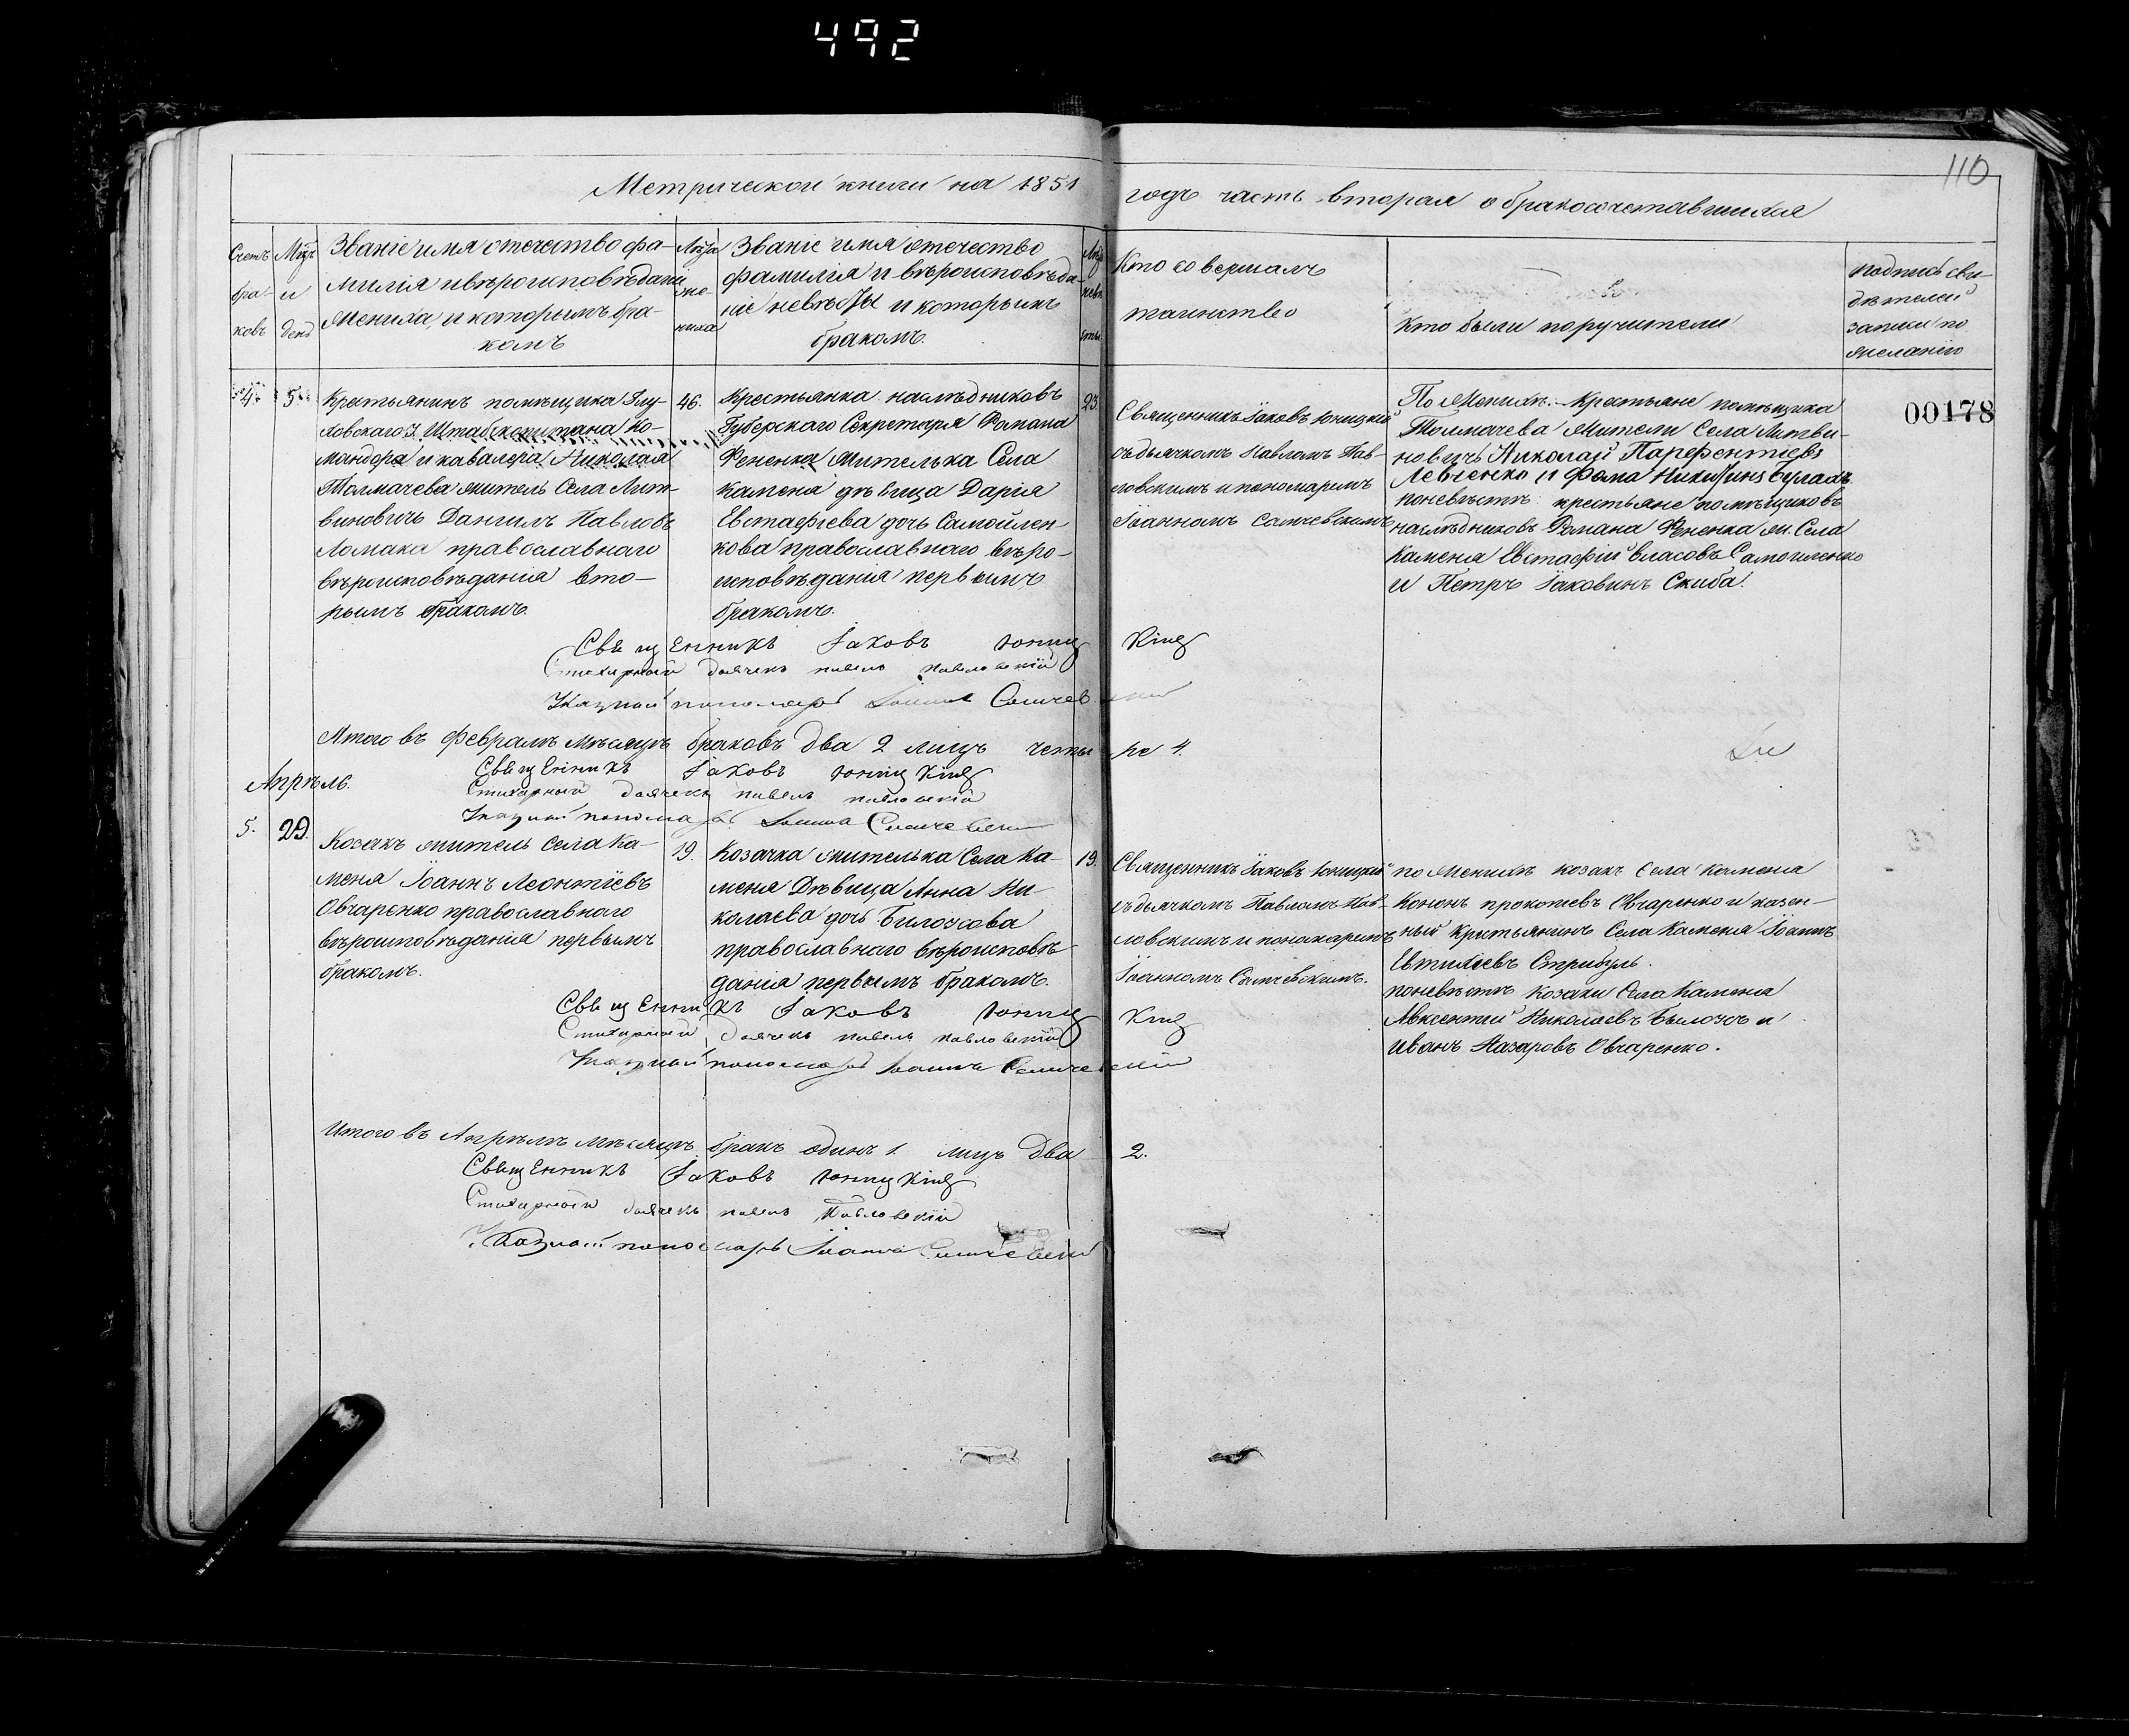 492
110
Метрической книги на 1851
годъ часть вторая о бракосочетавшихся
Счетъ
бра-
ковъ
Мцъ
и
день
Званіе имя отечество фа-
милія и вѣроисповѣданіе
жениха, и которымъ бра-
комъ
Лѣта
же-
ниха
Званіе имя отечество
фамилія и вѣроисповѣда-
ніе невѣсты и которымъ
бракомъ.
Лѣта
невѣ
сты.
Кто совершалъ
таинство
Кто были поручители
подпись сви-
дѣтелей
записи по
желанію
00178
4.
5.
Крестьянинъ помѣщика Глу-
ховскаго У. Штабскапитана Ко-
мандора и кавалера Николая
Толмачева житель Села Лит-
виновичь Даніилъ Павловъ
Ломака православнаго
вѣроисповѣданія вто-
рымъ бракомъ.
46.
Крестьянка наслѣдниковъ
Губерскаго Секретаря Романа
Фененка жителька Села
Каменя дѣвица Дарія
Евстафіева дочь Самойлен-
кова православнаго вѣро-
исповѣданія первымъ
бракомъ.
23.
Священникъ Іаковъ Юницкій
съ дьячкомъ Павломъ Пав-
ловскимъ и пономаремъ
Іоанномъ Самчевскимъ
По Женихѣ: Крестьяне помѣщика
Толмачева жители Села Литви-
новичь Николай Парефентіевъ
Левченко и Фома Никитинъ Булахъ
по невѣстѣ крестьяне помѣщиковъ
наслѣдниковъ Романа Фененка ж. Села
Каменя Евстафій Власовъ Самойленко
и Петръ Іаковинъ Скиба.
Свещенникъ Іаковъ Юницкій
Стихарный дьячекъ павелъ павловскій
Указный пономарь Іоаннъ Самчевскій
Итого въ Февралѣ мѣсяцѣ браковъ два 2 лицъ четыре 4.
Свещенникъ Іаковъ Юницкій
Стихарный дьячекъ павелъ павловскій
Указный пономарь Іоаннъ Самчевскій
Апрѣль.
5.
29.
Козакъ житель Села Ка-
меня Іоаннъ Леонтіевъ
Овчаренко православнаго
вѣроисповѣданія первымъ
бракомъ.
19.
Козачка жителька Села Ка-
меня Дѣвица Анна Ни-
колаева дочь Билозсова
православнаго вѣроисповѣ-
данія первымъ бракомъ.
19.
Священникъ Іаковъ Юницкій
съ дьячкомъ Павломъ Пав-
ловскимъ и пономаремъ
Іоанномъ Самчевскимъ.
по Женихѣ козакъ Села Каменя
Кононъ прокопіевъ Овчаренко и казен-
ный Крестьянинъ Села Каменя Іоаннъ
Евтихіевъ Стрибуль.
по невѣстѣ Козаки Села Каменя
Авксентій Николаевъ Былозъ и
Иванъ Назаровъ Овчаренко.
Свещенникъ Іаковъ Юницкій
Стихарный дьячекъ павелъ павловскій
Указный пономарь Іоаннъ Самчевскій
Итого въ Апрѣлѣ мѣсяцѣ бракъ одинъ 1. лицъ два 2.
Свещенникъ Іаковъ Юницкій
Стихарный дьячекъ павелъ Павловскій
Указный пономарь Іоаннъ Самчевскій